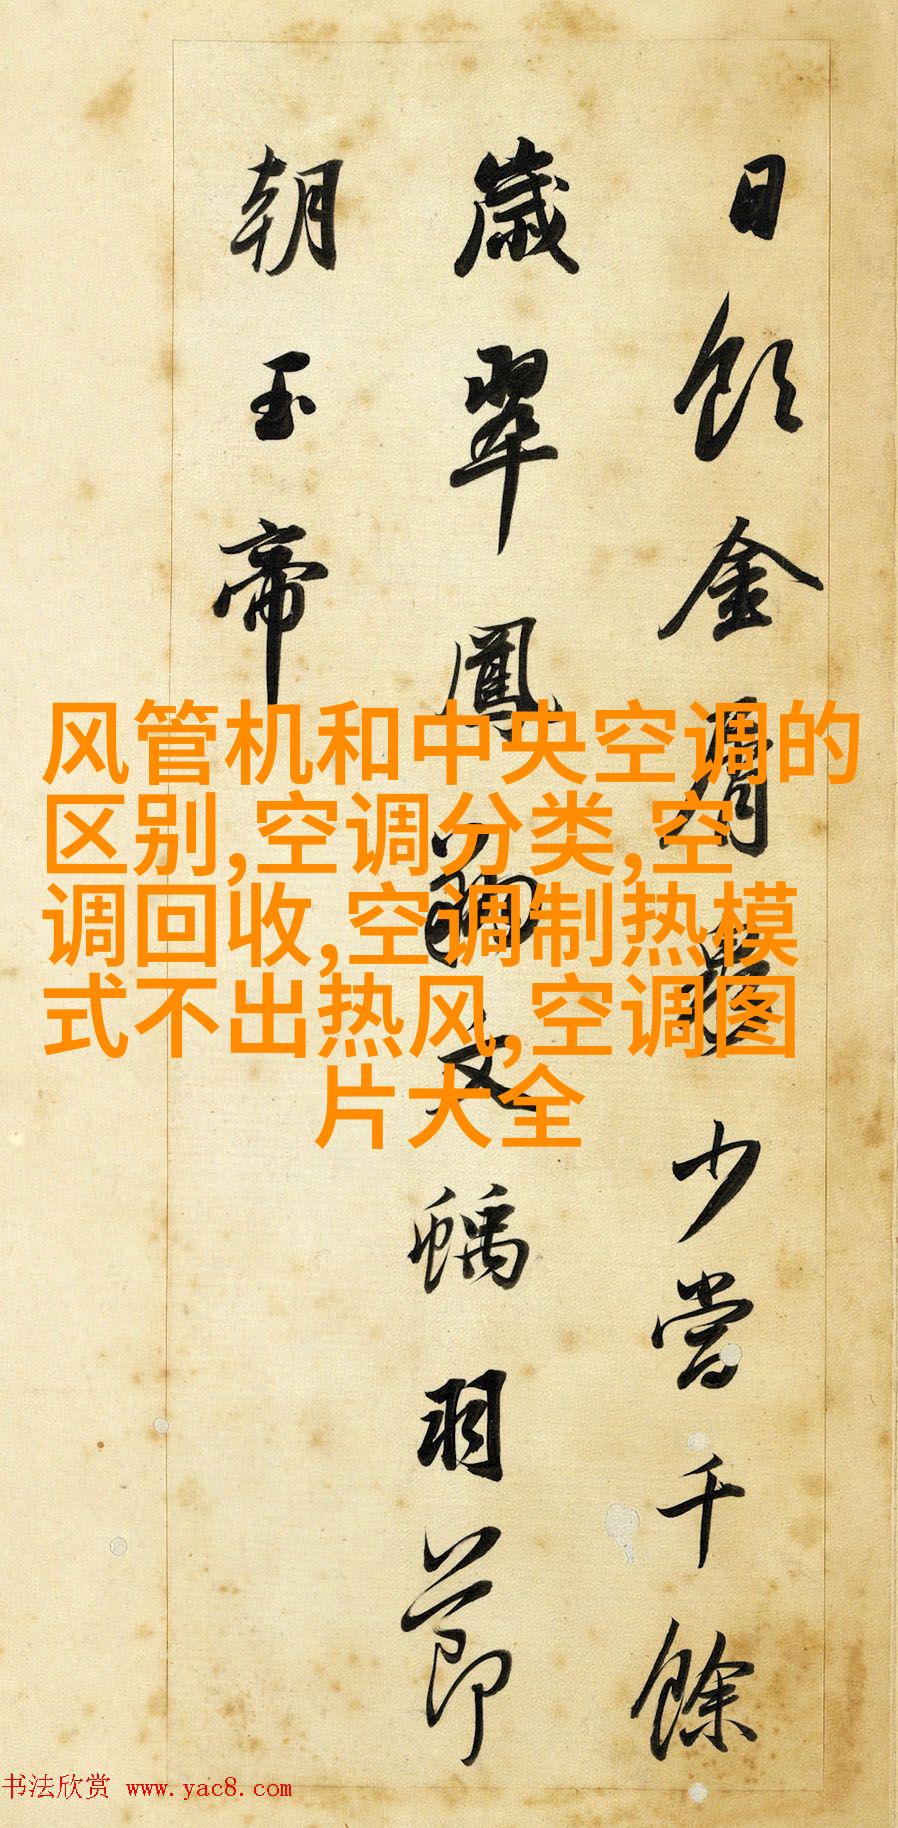 日飲金屑泉少當千餘
歲翠鳳翊文螭羽節
朝玉帝
风管机和中央空调的
区别,空调分类,空
调回收,空调制热模
式不出热风,空调图
片大全
书法欣赏 www.yac8.com